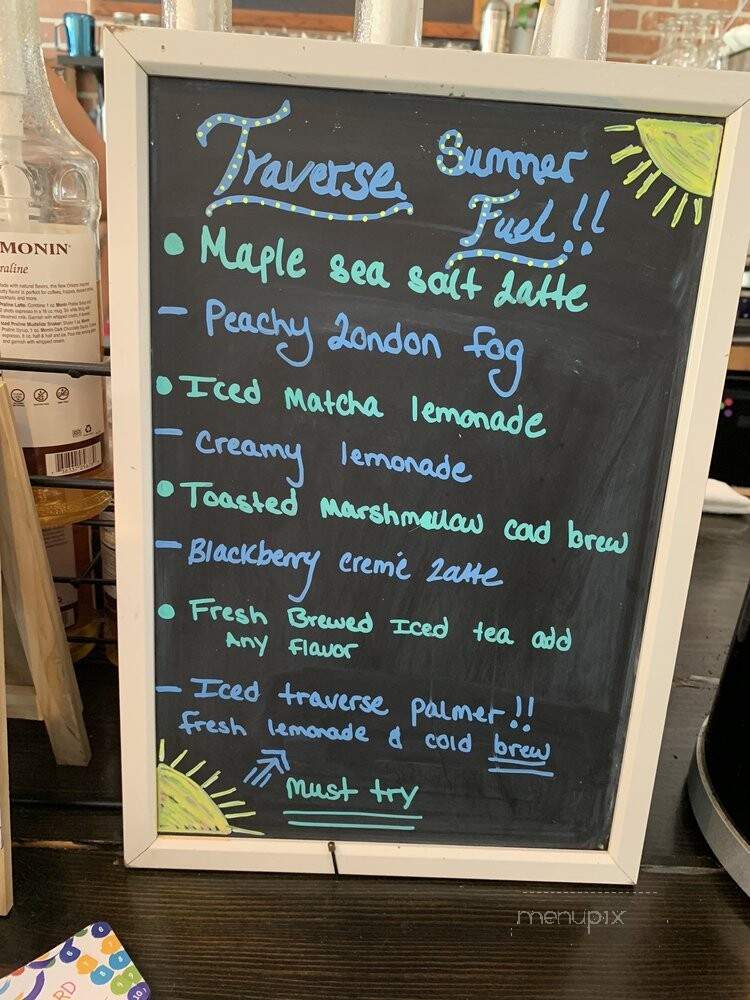 Traverse Summer
Fuel!!
• Maple sea salt Latte
- Peachy London fog
• Iced Matcha lemonade
- creamy lemonade
• Toasted Marshmallow cold brew
- Blackberry cremé Latte
• Fresh Brewed Iced tea add
Any Flavor
- Iced traverse palmer!!
fresh lemonade & cold brew
Must try
MONIN
raline
menupix